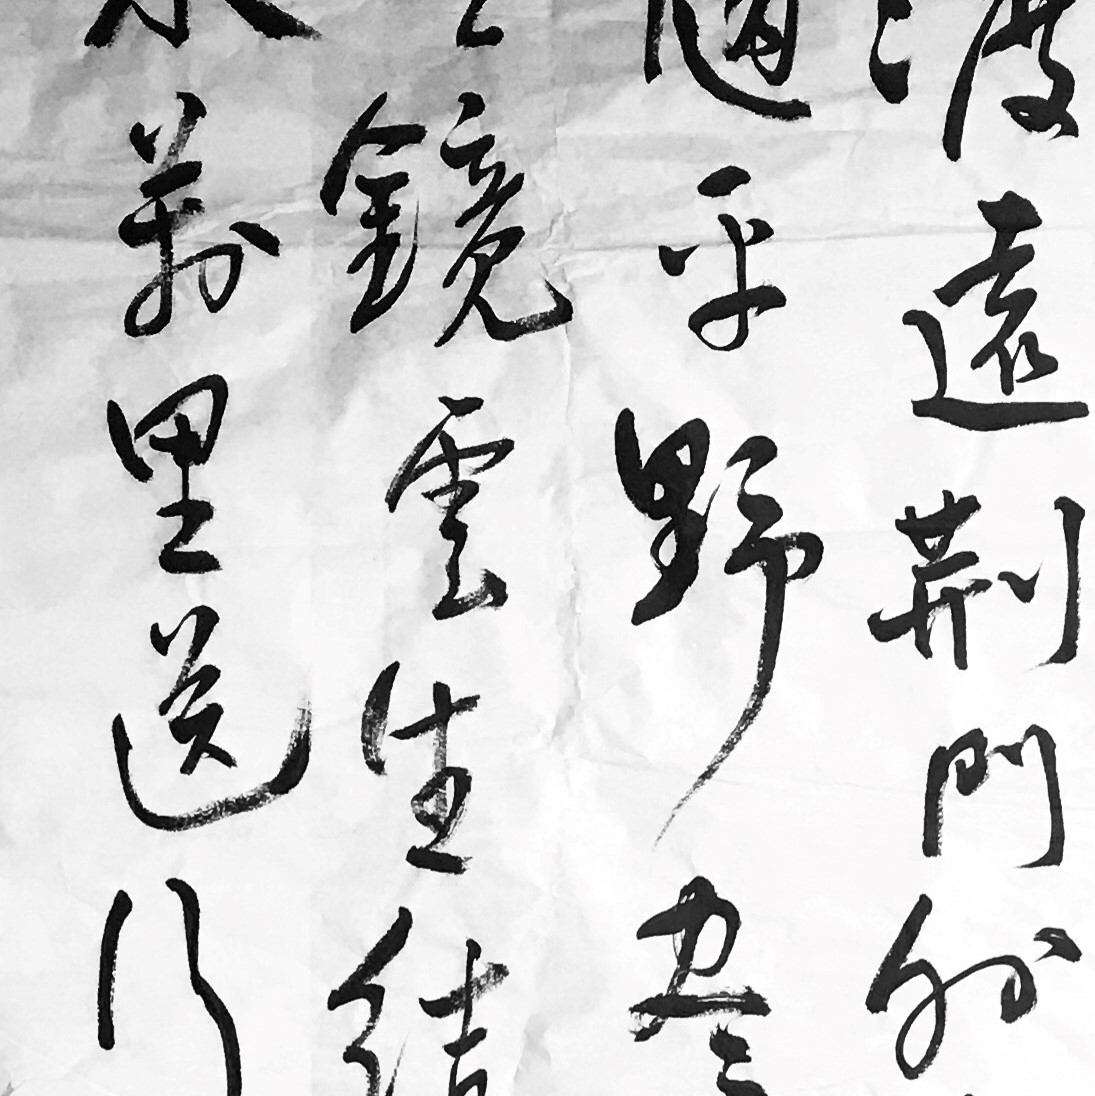 渡遠荆門外
随平野盡
鏡雲生結
水萬里送行